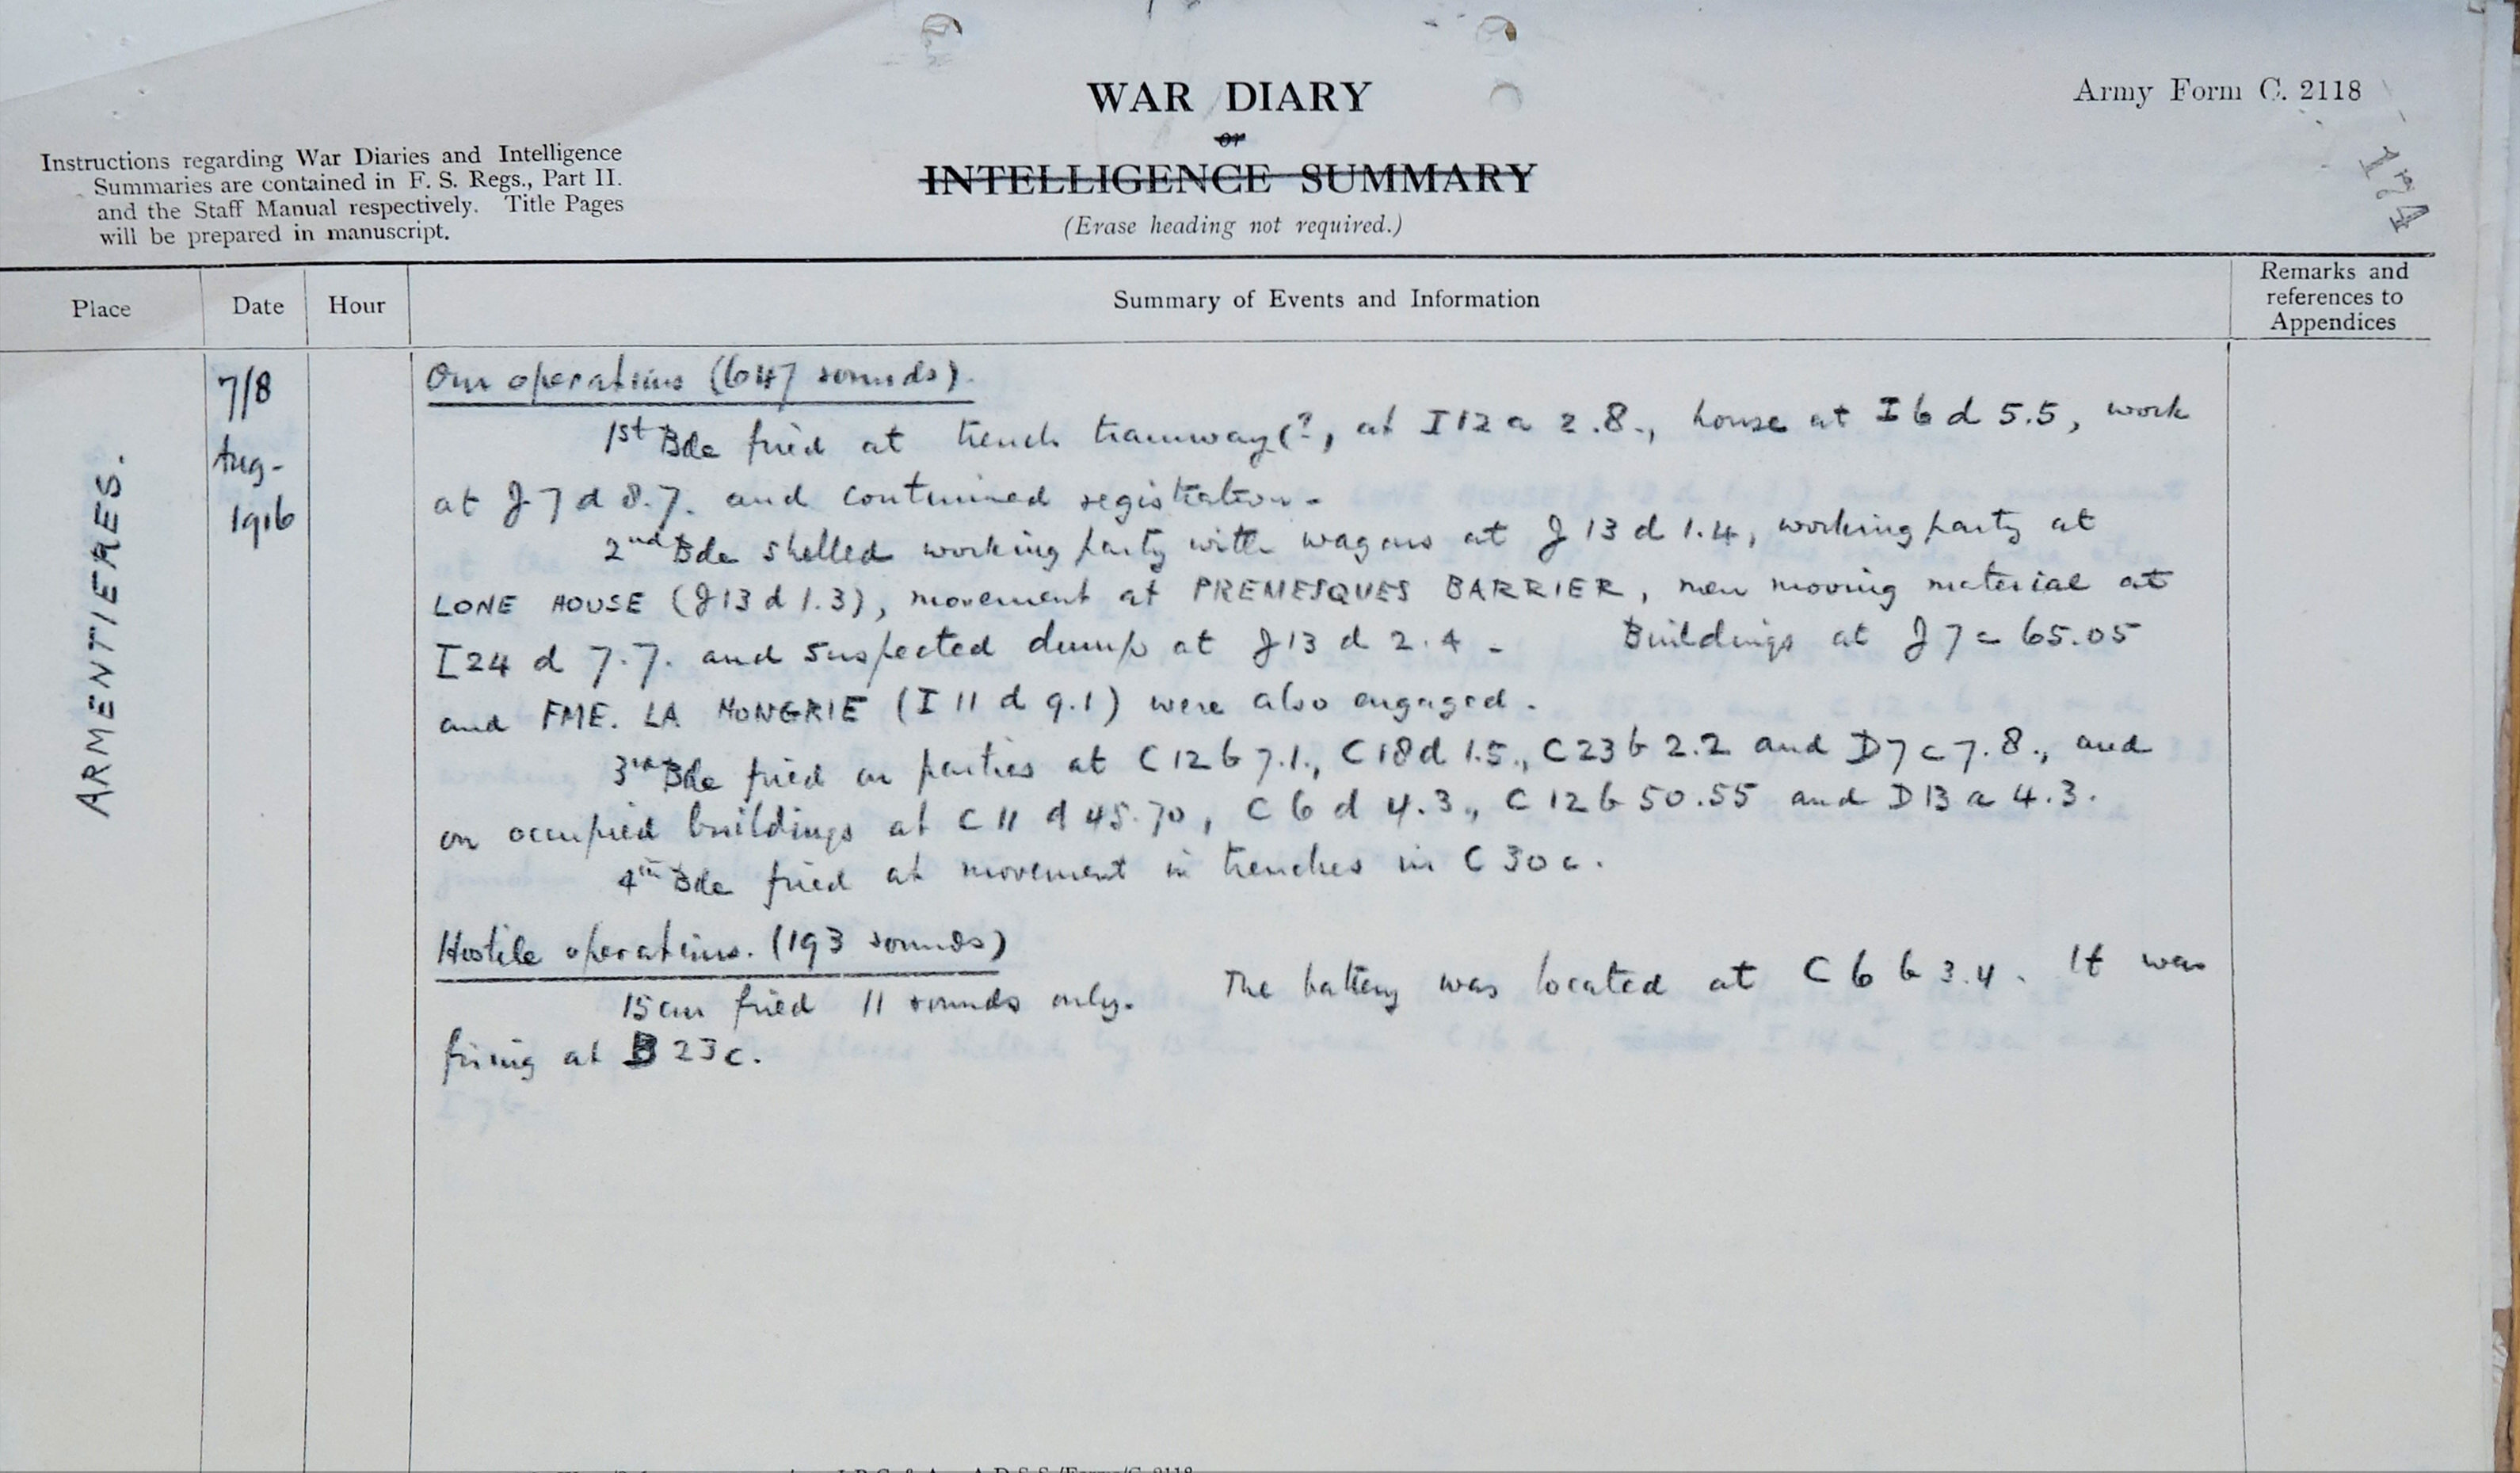 WAR DIARY
or
INTELLIGENCE SUMMARY
(Erase heading not required.)
Army Form C. 2118
174
Instructions regarding War Diaries and Intelligence
Summaries are contained in F. S. Regs., Part II.
and the Staff Manual respectively. Title Pages
will be prepared in manuscript.
Place
Date
Hour
Summary of Events and Information
Remarks and
references to
Appendices
ARMENTIERES.
7/8
Aug-
1916
Our operations (647 rounds).
1st Bde fired at trench tramway(?, at I 12 a 2.8., house at I 6 d 5.5, work
at J 7 d 8.7. and continued registration.
2nd Bde shelled working party with wagons at J 13 d 1.4, working party at
LONE HOUSE (J 13 d 1.3), movement at PREMESQUES BARRIER, men moving material at
I 24 d 7.7. and suspected dump at J 13 d 2.4 - Buildings at J 7 c 65.05
and FME. LA MONGRIE (I 11 d 9.1) were also engaged.
3rd Bde fired on parties at C 12 b 7.1., C 18 d 1.5., C 23 b 2.2 and D 7 c 7.8., and
on occupied buildings at C 11 d 45.70, C 6 d 4.3., C 12 b 50.55 and D 13 a 4.3.
4th Bde fired at movement in trenches in C 30 a.
Hostile operations. (193 rounds)
15 cm fired 11 rounds only. The battery was located at C 6 b 3.4. It was
firing at B 23 c.